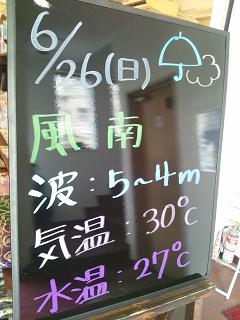 6/26(日)
風 南
波:5~4m
気温:30℃
水温:27℃